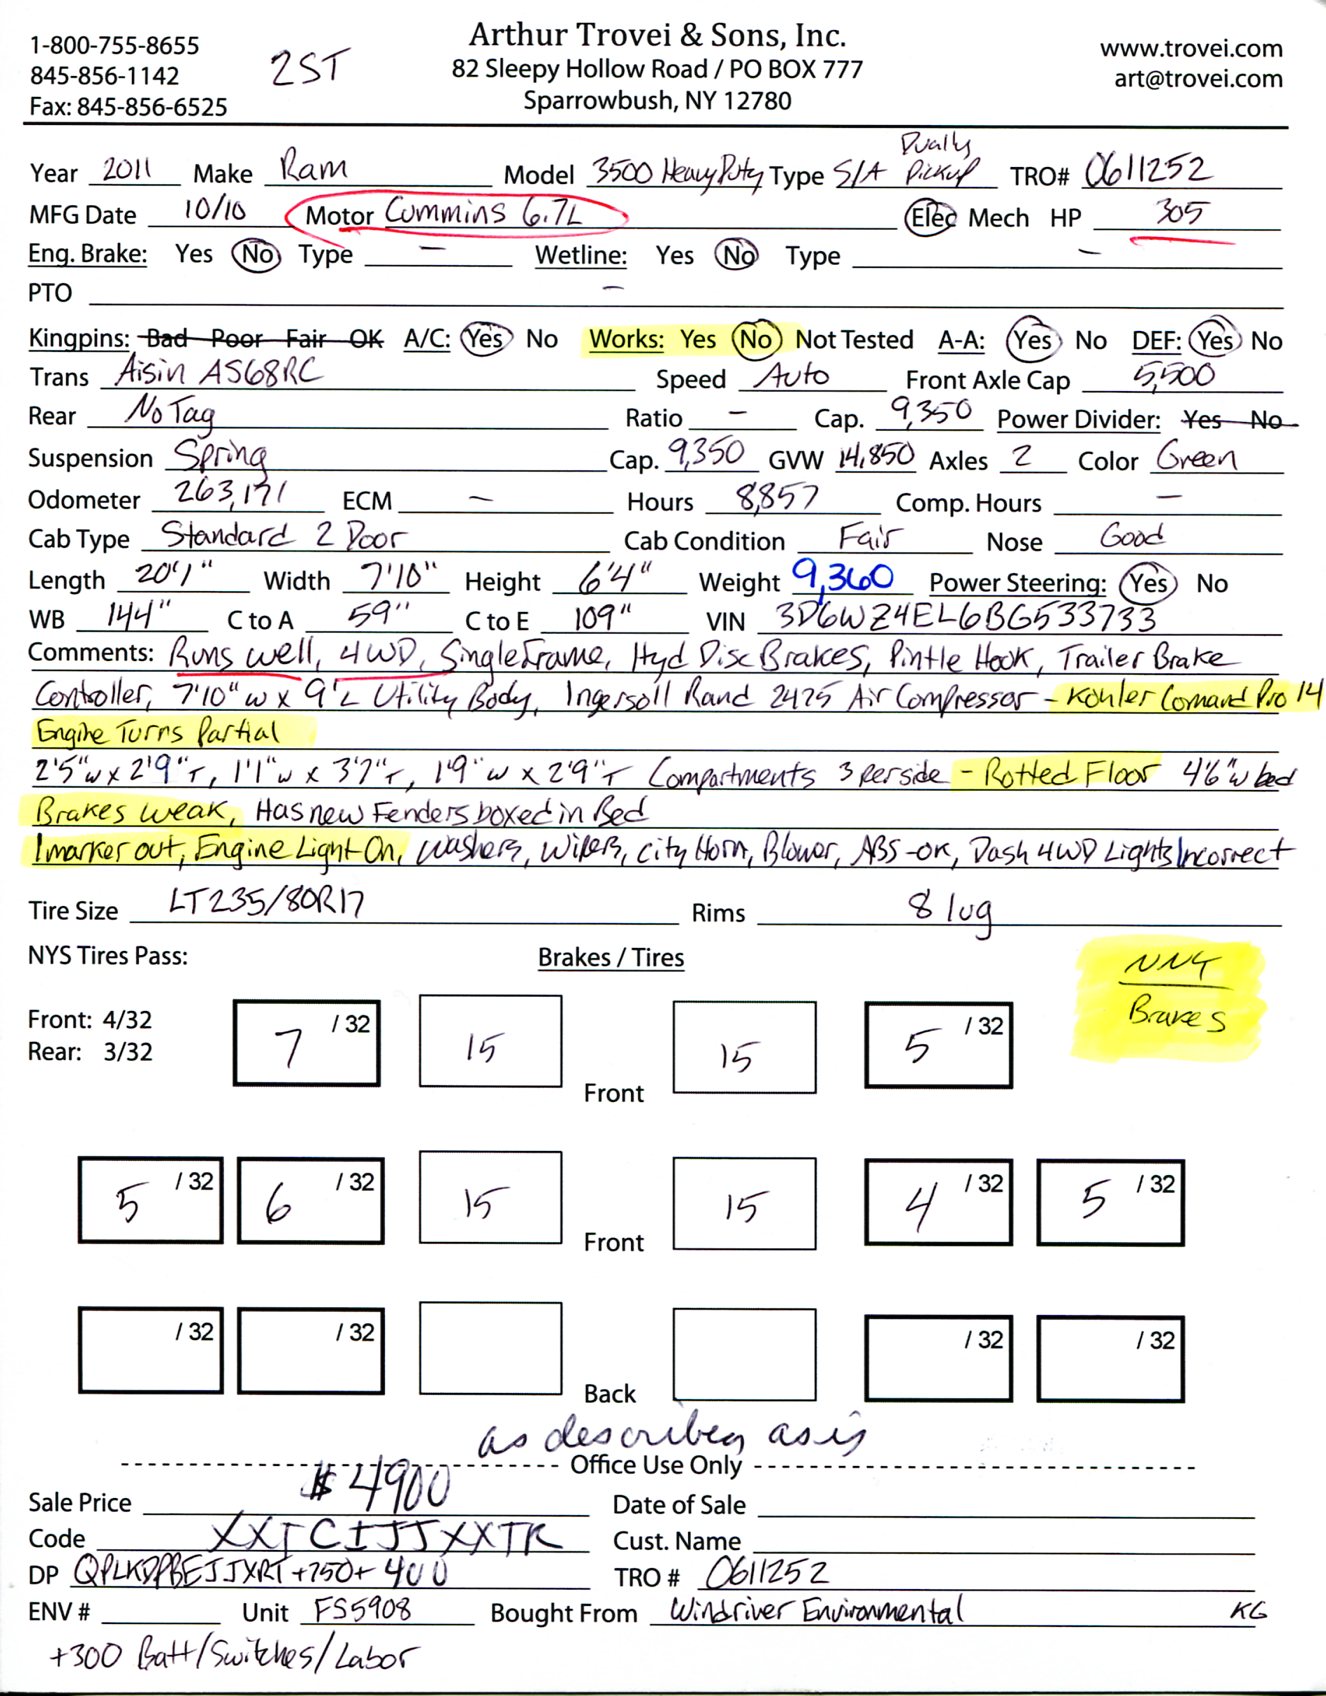 1-800-755-8655
845-856-1142
Fax: 845-856-6525
2ST
Arthur Trovei & Sons, Inc.
82 Sleepy Hollow Road / PO BOX 777
Sparrowbush, NY 12780
www.trovei.com
art@trovei.com
Year 2011 Make Ram Model 3500 Heavy Duty Type S/A Dually Pickup TRO# 0611252
MFG Date 10/10 Motor Cummins 6.7L Elec Mech HP 305
Eng. Brake: Yes No Type — Wetline: Yes No Type —
PTO —
Kingpins: Bad Poor Fair OK A/C: Yes No Works: Yes No Not Tested A-A: Yes No DEF: Yes No
Trans Aisin AS68RC Speed Auto Front Axle Cap 5,500
Rear No Tag Ratio — Cap. 9,350 Power Divider: Yes No
Suspension Spring Cap. 9,350 GVW 14,850 Axles 2 Color Green
Odometer 263,171 ECM — Hours 8,857 Comp. Hours —
Cab Type Standard 2 Door Cab Condition Fair Nose Good
Length 20'1" Width 7'10" Height 6'4" Weight 9,360 Power Steering: Yes No
WB 144" C to A 59" C to E 109" VIN 3D6WZ4EL6BG533733
Comments: Runs well, 4WD, Single Frame, Hyd Disc Brakes, Pintle Hook, Trailer Brake
Controller, 7'10"w x 9'L Utility Body, Ingersoll Rand 2475 Air Compressor - Kohler Comand Pro 14
Engine Turns Partial
2'5"w x 2'9"T, 1'1"w x 3'7"T, 1'9"w x 2'9"T Compartments 3 per side - Rotted Floor 4'6"w bed
Brakes weak, Has new Fenders boxed in Bed
1 marker out, Engine Light On, washers, wipers, city Horn, Blower, ABS-ok, Dash 4WD Lights Incorrect
Tire Size LT235/80R17 Rims 8 lug
NYS Tires Pass: Brakes / Tires
NNY
Brakes
Front: 4/32
Rear: 3/32
7 /32 15 Front 15 5 /32
5 /32 6 /32 15 Front 15 4 /32 5 /32
/ 32 / 32 Back / 32 / 32
as described as is
Office Use Only
Sale Price $4900 Date of Sale
Code XXTCIJJXXTR Cust. Name
DP QPLKDPBEJJXRT +750+ 400 TRO # 0611252
ENV # Unit FS5908 Bought From Windriver Environmental KG
+300 Batt/Switches/Labor